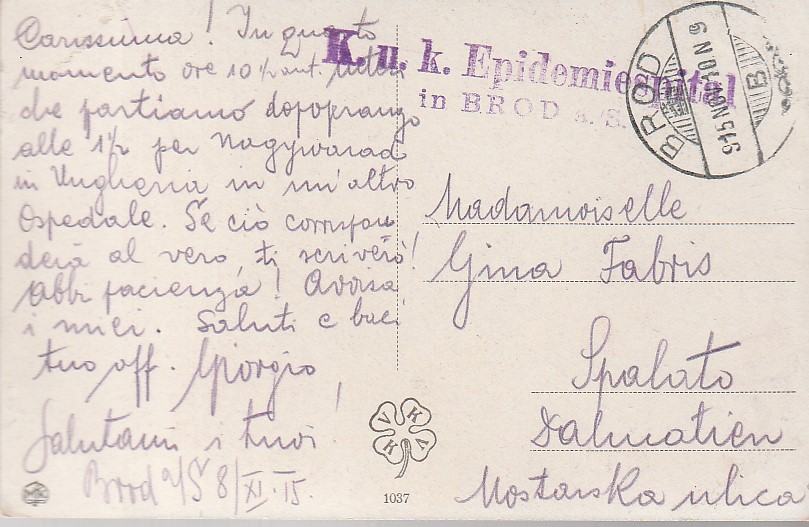 Carissima! In questo
momento ore 10½ ant.
che partiamo dopopranzo
alle 1½ per Nagywarad
in Ungheria in un'altro
Ospedale. Se ciò corrispon
derà al vero, ti scriverò!
Abbi pacienza! Avvisa
i miei. Saluti e baci
tuo aff. Giorgio
Salutami i tuoi!
Brod a/S 8/XI.15.
K. u. k. Epidemiespital
in BROD a./S.
BROD
915 NOV 10 N 6
B
Madamoiselle
Gina Fabris
Spalato
Dalmatien
Mostarska ulica
V K K V
MK
1037